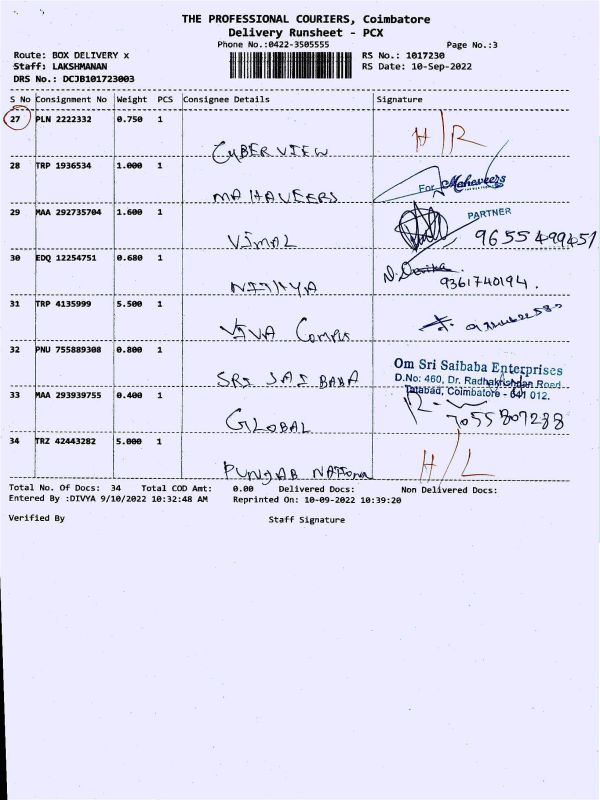 THE PROFESSIONAL COURIERS, Coimbatore
Delivery Runsheet - PCX
Phone No.:0422-3505555 Page No.:3
Route: BOX DELIVERY x RS No.: 1017230
Staff: LAKSHMANAN RS Date: 10-Sep-2022
DRS No.: DCJB101723003
S No Consignment No Weight PCS Consignee Details Signature
27 PLN 2222332 0.750 1
CYBER VIEW H/R
28 TRP 1936534 1.000 1
MAHAVEERS For Mahaveers
29 MAA 292735704 1.600 1 PARTNER
VIMAL 9655499451
30 EDQ 12254751 0.680 1
NITHYA 9361740194.
31 TRP 4135999 5.500 1
VIVA
32 PNU 755889308 0.800 1
SRI SAI BABA
Om Sri Saibaba Enterprises
D.No: 460, Dr. Radhakrishnan Road
Tatabad, Coimbatore - 641 012.
33 MAA 293939755 0.400 1
GLOBAL 7055807288
34 TRZ 42443282 5.000 1
PUNJAB H/L
Total No. Of Docs: 34 Total COD Amt: 0.00 Delivered Docs: Non Delivered Docs:
Entered By :DIVYA 9/10/2022 10:32:48 AM Reprinted On: 10-09-2022 10:39:20
Verified By Staff Signature